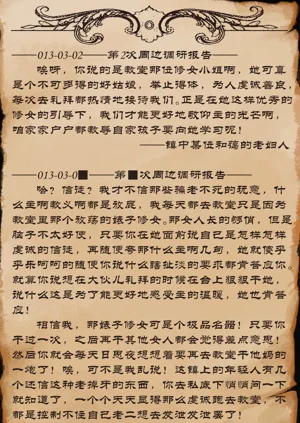 ——013-03-02——第2次周边调研报告————
唉呀，你说的是教堂那位修女小姐啊，她可真
是个不可多得的好姑娘，举止得体，为人虔诚善良，
每次去礼拜都热情地接待我们。正是在她这样优秀的
修女的引导下，我们才能更好地敬仰主的光芒啊，
咱家家户户都教导自家孩子要向她学习呢！
——镇中某位和蔼的老妇人
——013-03-0■——第■次周边调研报告————
哈？信徒？我才不信那些骗老不死的玩意，什
么主啊教义啊都是放屁，我每天都去教堂只是因为
教堂里那个放荡的婊子修女。那女人长的够俏，但是
脑子不太好使，只要你在她面前说自己是怎样怎样
虔诚的信徒，再随便夸那什么主啊几句，她就傻乎
乎乐呵呵的随便你说什么瞎扯淡的要求都肯答应你。
就算你说想在大伙儿礼拜的时候在台上狠狠干她，
说什么这是为了能更好地感受主的温暖，她也肯答
应！
相信我，那婊子修女可是个极品名器！只要你
干过一次，之后再干其他女人都会觉得差点意思！
然后你就会每天日思夜想想着要再去教堂干他妈的
一炮了！嗐，可不是我乱说！这镇上的年轻人有几
个还信这种老掉牙的东西，你去私底下悄悄问一下
就知道了，一个个天天显得那么虔诚跑去教堂，不
都是控制不住自己老二想去发泄发泄罢了！